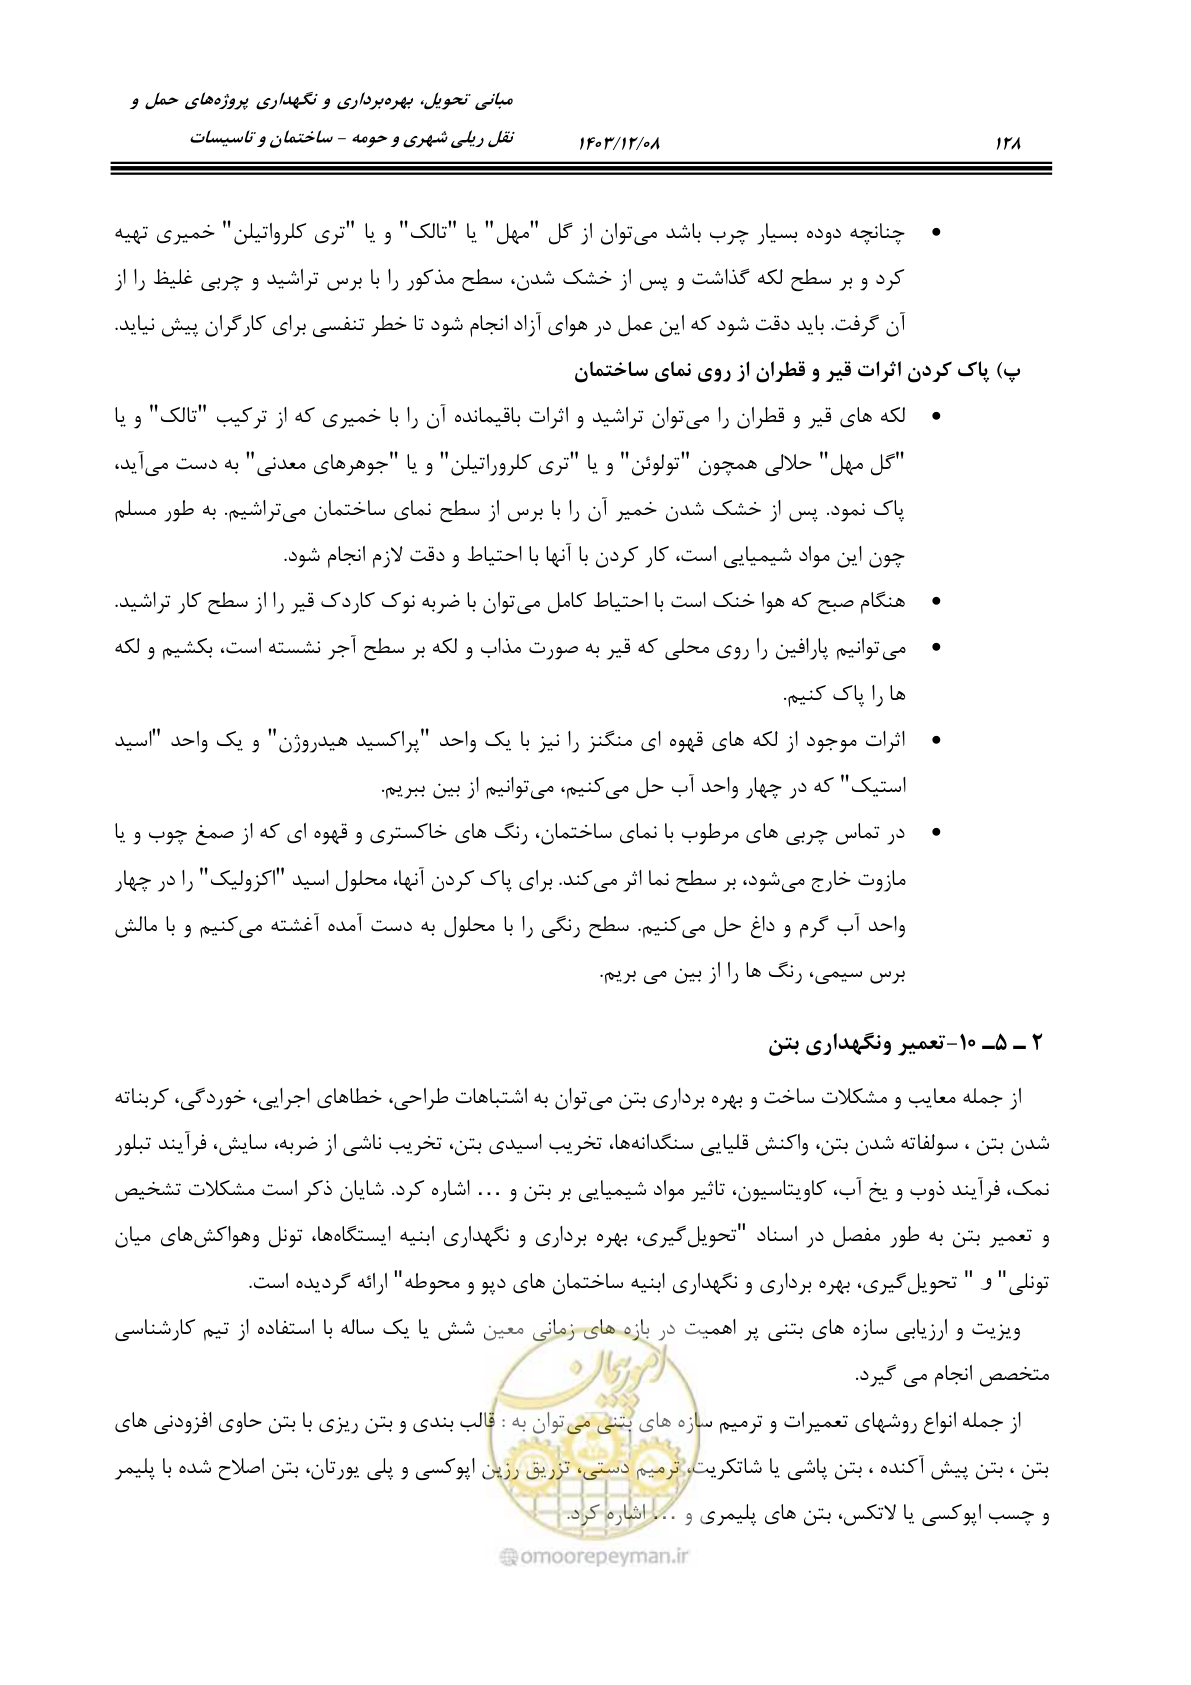 مبانی تحویل، بهره‌برداری و نگهداری پروژه‌های حمل و
نقل ریلی شهری و حومه – ساختمان و تاسیسات
۱۴۰۳/۱۲/۰۸
۱۲۸
• چنانچه دوده بسیار چرب باشد می‌توان از گل "مهل" یا "تالک" و یا "تری کلرواتیلن" خمیری تهیه
کرد و بر سطح لکه گذاشت و پس از خشک شدن، سطح مذکور را با برس تراشید و چربی غلیظ را از
آن گرفت. باید دقت شود که این عمل در هوای آزاد انجام شود تا خطر تنفسی برای کارگران پیش نیاید.
پ) پاک کردن اثرات قیر و قطران از روی نمای ساختمان
• لکه های قیر و قطران را می‌توان تراشید و اثرات باقیمانده آن را با خمیری که از ترکیب "تالک" و یا
"گل مهل" حلالی همچون "تولوئن" و یا "تری کلروراتیلن" و یا "جوهرهای معدنی" به دست می‌آید،
پاک نمود. پس از خشک شدن خمیر آن را با برس از سطح نمای ساختمان می‌تراشیم. به طور مسلم
چون این مواد شیمیایی است، کار کردن با آنها با احتیاط و دقت لازم انجام شود.
• هنگام صبح که هوا خنک است با احتیاط کامل می‌توان با ضربه نوک کاردک قیر را از سطح کار تراشید.
• می‌توانیم پارافین را روی محلی که قیر به صورت مذاب و لکه بر سطح آجر نشسته است، بکشیم و لکه
ها را پاک کنیم.
• اثرات موجود از لکه های قهوه ای منگنز را نیز با یک واحد "پراکسید هیدروژن" و یک واحد "اسید
استیک" که در چهار واحد آب حل می‌کنیم، می‌توانیم از بین ببریم.
• در تماس چربی های مرطوب با نمای ساختمان، رنگ های خاکستری و قهوه ای که از صمغ چوب و یا
مازوت خارج می‌شود، بر سطح نما اثر می‌کند. برای پاک کردن آنها، محلول اسید "اکزولیک" را در چهار
واحد آب گرم و داغ حل می‌کنیم. سطح رنگی را با محلول به دست آمده آغشته می‌کنیم و با مالش
برس سیمی، رنگ ها را از بین می بریم.
۲ ـ ۵ـ ۱۰-تعمیر ونگهداری بتن
از جمله معایب و مشکلات ساخت و بهره برداری بتن می‌توان به اشتباهات طراحی، خطاهای اجرایی، خوردگی، کربناته
شدن بتن ، سولفاته شدن بتن، واکنش قلیایی سنگدانه‌ها، تخریب اسیدی بتن، تخریب ناشی از ضربه، سایش، فرآیند تبلور
نمک، فرآیند ذوب و یخ آب، کاویتاسیون، تاثیر مواد شیمیایی بر بتن و ... اشاره کرد. شایان ذکر است مشکلات تشخیص
و تعمیر بتن به طور مفصل در اسناد "تحویل‌گیری، بهره برداری و نگهداری ابنیه ایستگاه‌ها، تونل وهواکش‌های میان
تونلی" و " تحویل‌گیری، بهره برداری و نگهداری ابنیه ساختمان های دپو و محوطه" ارائه گردیده است.
ویزیت و ارزیابی سازه های بتنی پر اهمیت در بازه های زمانی معین شش یا یک ساله با استفاده از تیم کارشناسی
متخصص انجام می گیرد.
از جمله انواع روشهای تعمیرات و ترمیم سازه های بتنی می‌توان به : قالب بندی و بتن ریزی با بتن حاوی افزودنی های
بتن ، بتن پیش آکنده ، بتن پاشی یا شاتکریت، ترمیم دستی، تزریق رزین اپوکسی و پلی یورتان، بتن اصلاح شده با پلیمر
و چسب اپوکسی یا لاتکس، بتن های پلیمری و ... اشاره کرد.
امور پیمان
@omoorepeyman.ir